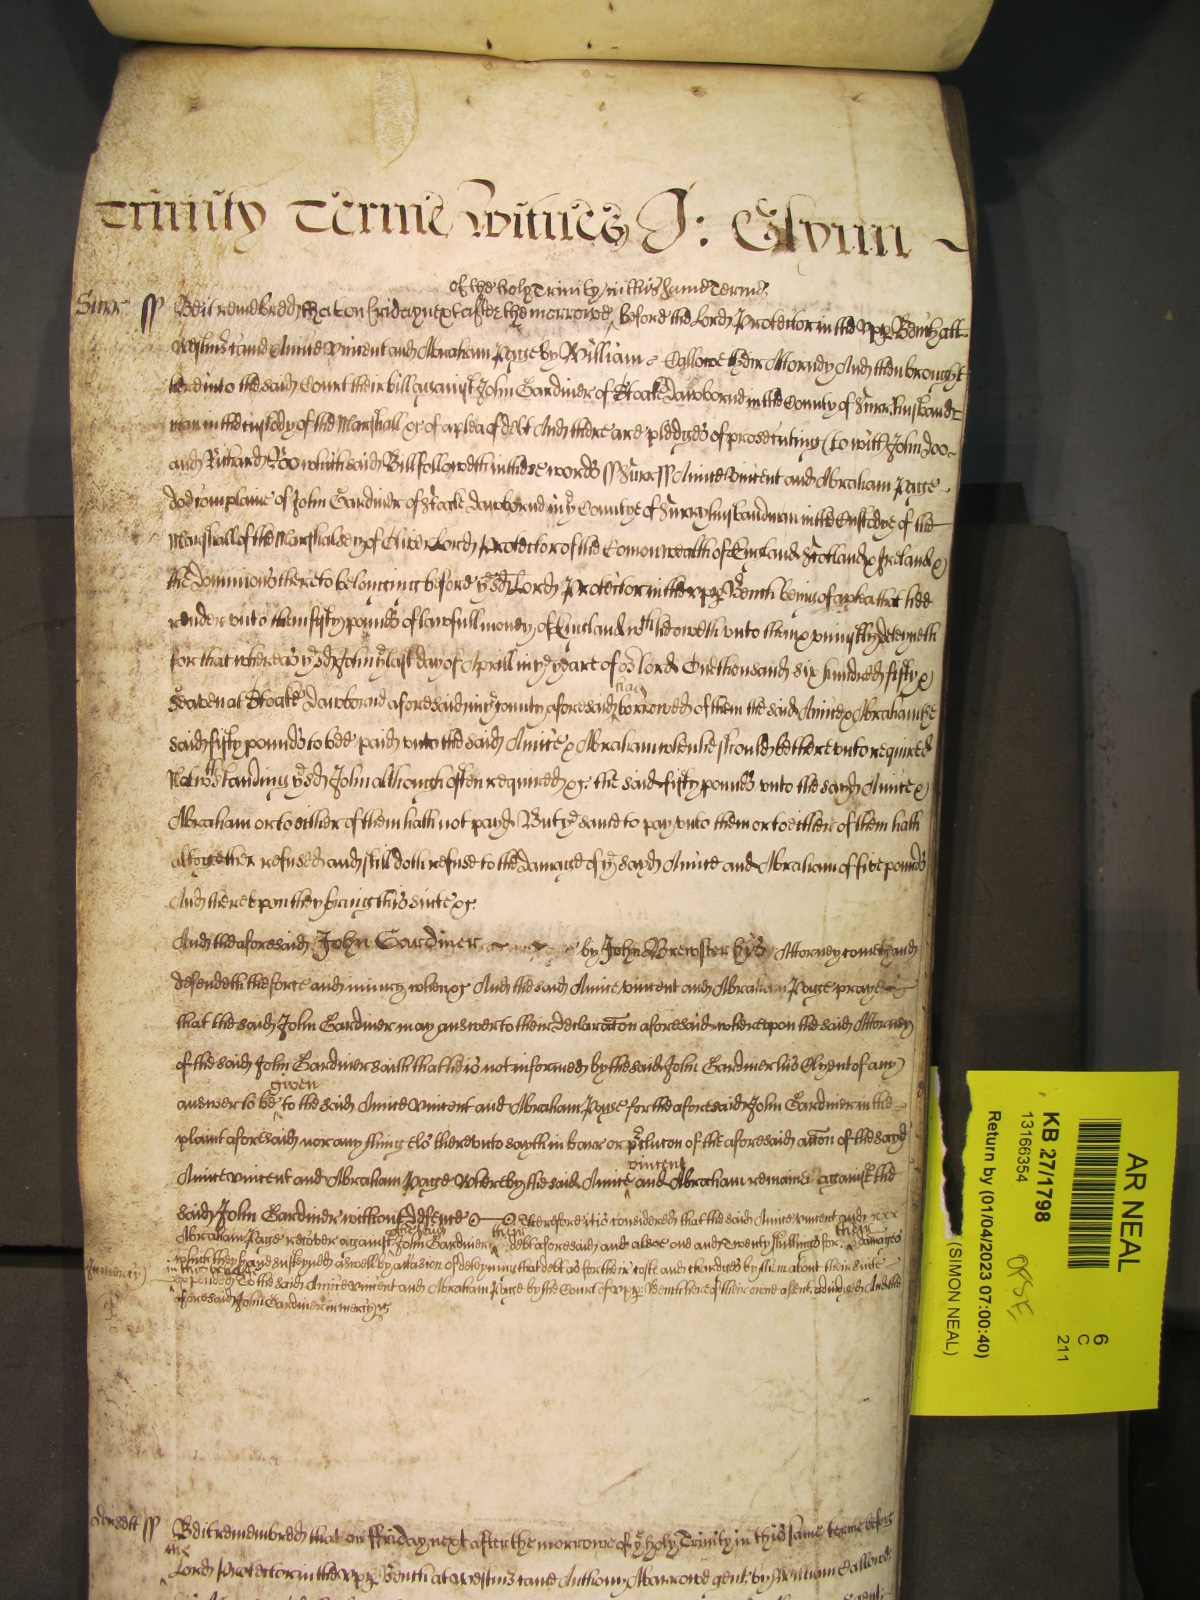 Trinity Terme Witnes J: Glynn
of the holy Trinity in this same Terme
Surr ss Be it remembred that on Friday next after the morrowe before the Lord Protector in the upper Bench att
Westminster came Annie Vincent and Abraham Page by William Callowe their Attorney And then brought
here into the said Court their bill against John Gardiner of Stoake Dawborne in the County of Surr husband
man in the custody of the Marshall &c of a plea of debt And there are pledges of prosecuting (to witt) John Doo
and Richard Roo which said Bill followeth in these words ss Surr ss Annie Vincent and Abraham Page
doe complaine of John Gardiner of Stoake Dawborne in ye Countye of Surry husbandman in the Custodye of the
Marshall of the Marshalsey of Oliver Lord Protector of the Comonwealth of England Scotland & Ireland &
the Dominions thereto belonging before ye sd Lord Protector in the upper Bench being of a plea that hee
render unto them fifty pounds of lawfull money of England wch he oweth unto them & uniustly deteyneth
for that whereas ye sd John ye last day of Aprill in ye yeare of or Lord One thousand six hundred fifty &
had
seaven at Stoake Dawborne aforesaid in ye County aforesaid borrowed of them the said Annie & Abraham the
said fifty pounds to bee paid unto the said Annie & Abraham when he should be there unto required
Notwthstanding ye sd John although often required &c the said fifty pounds unto the sayd Annie &
Abraham or to either of them hath not payd But ye same to pay unto them or to either of them hath
altogether refused and still doth refuse to the damage of ye sayd Annie and Abraham of five pounds
And thereupon they bring this suite &c
And the aforesaid John Gardiner by John Brewster his Attorney cometh and
defendeth the force and iniury when &c And the said Annie Vincent and Abraham Page praye
that the said John Gardiner may answer to their declaracon aforesaid whereupon the said Attorney
of the said John Gardiner saith that he is not informed by the said John Gardiner his Clyent of any
given
answer to be to the said Annie Vincent and Abraham Page for the aforesaid John Gardiner in the
plaint aforesaid nor any thing els thereunto sayth in barr or preclusion of the aforesaid accon of the sayd
vincent
Annie Vincent and Abraham Page Whereby the said Annie and Abraham remaine against the
said John Gardiner without Defence Therefore it is considered that the said Annie Vincent and
the said their their
Abraham Page recover against John Gardiner debt aforesaid and alsoe one and Twenty shillings for damages
which they have susteyned aswell by occasion of deteyning that debt as for their costs and chardges by them about their suite
in this behalfe
In mercy expended To the said Annie Vincent and Abraham Page by the Court of upper Bench here of their owne assent adiudged And the
aforesaid John Gardiner in mercy &c
ss Be it remembred that on Friday next after the morrowe of ye holy Trinity in this same terme before
the
Lord Protector in the upper Bench at Westmr came Anthony Abarrowe gent by William Callowe
AR NEAL
KB 27/1798
13166354
Return by (01/04/2023 07:00:40)
(SIMON NEAL)
6
C
211